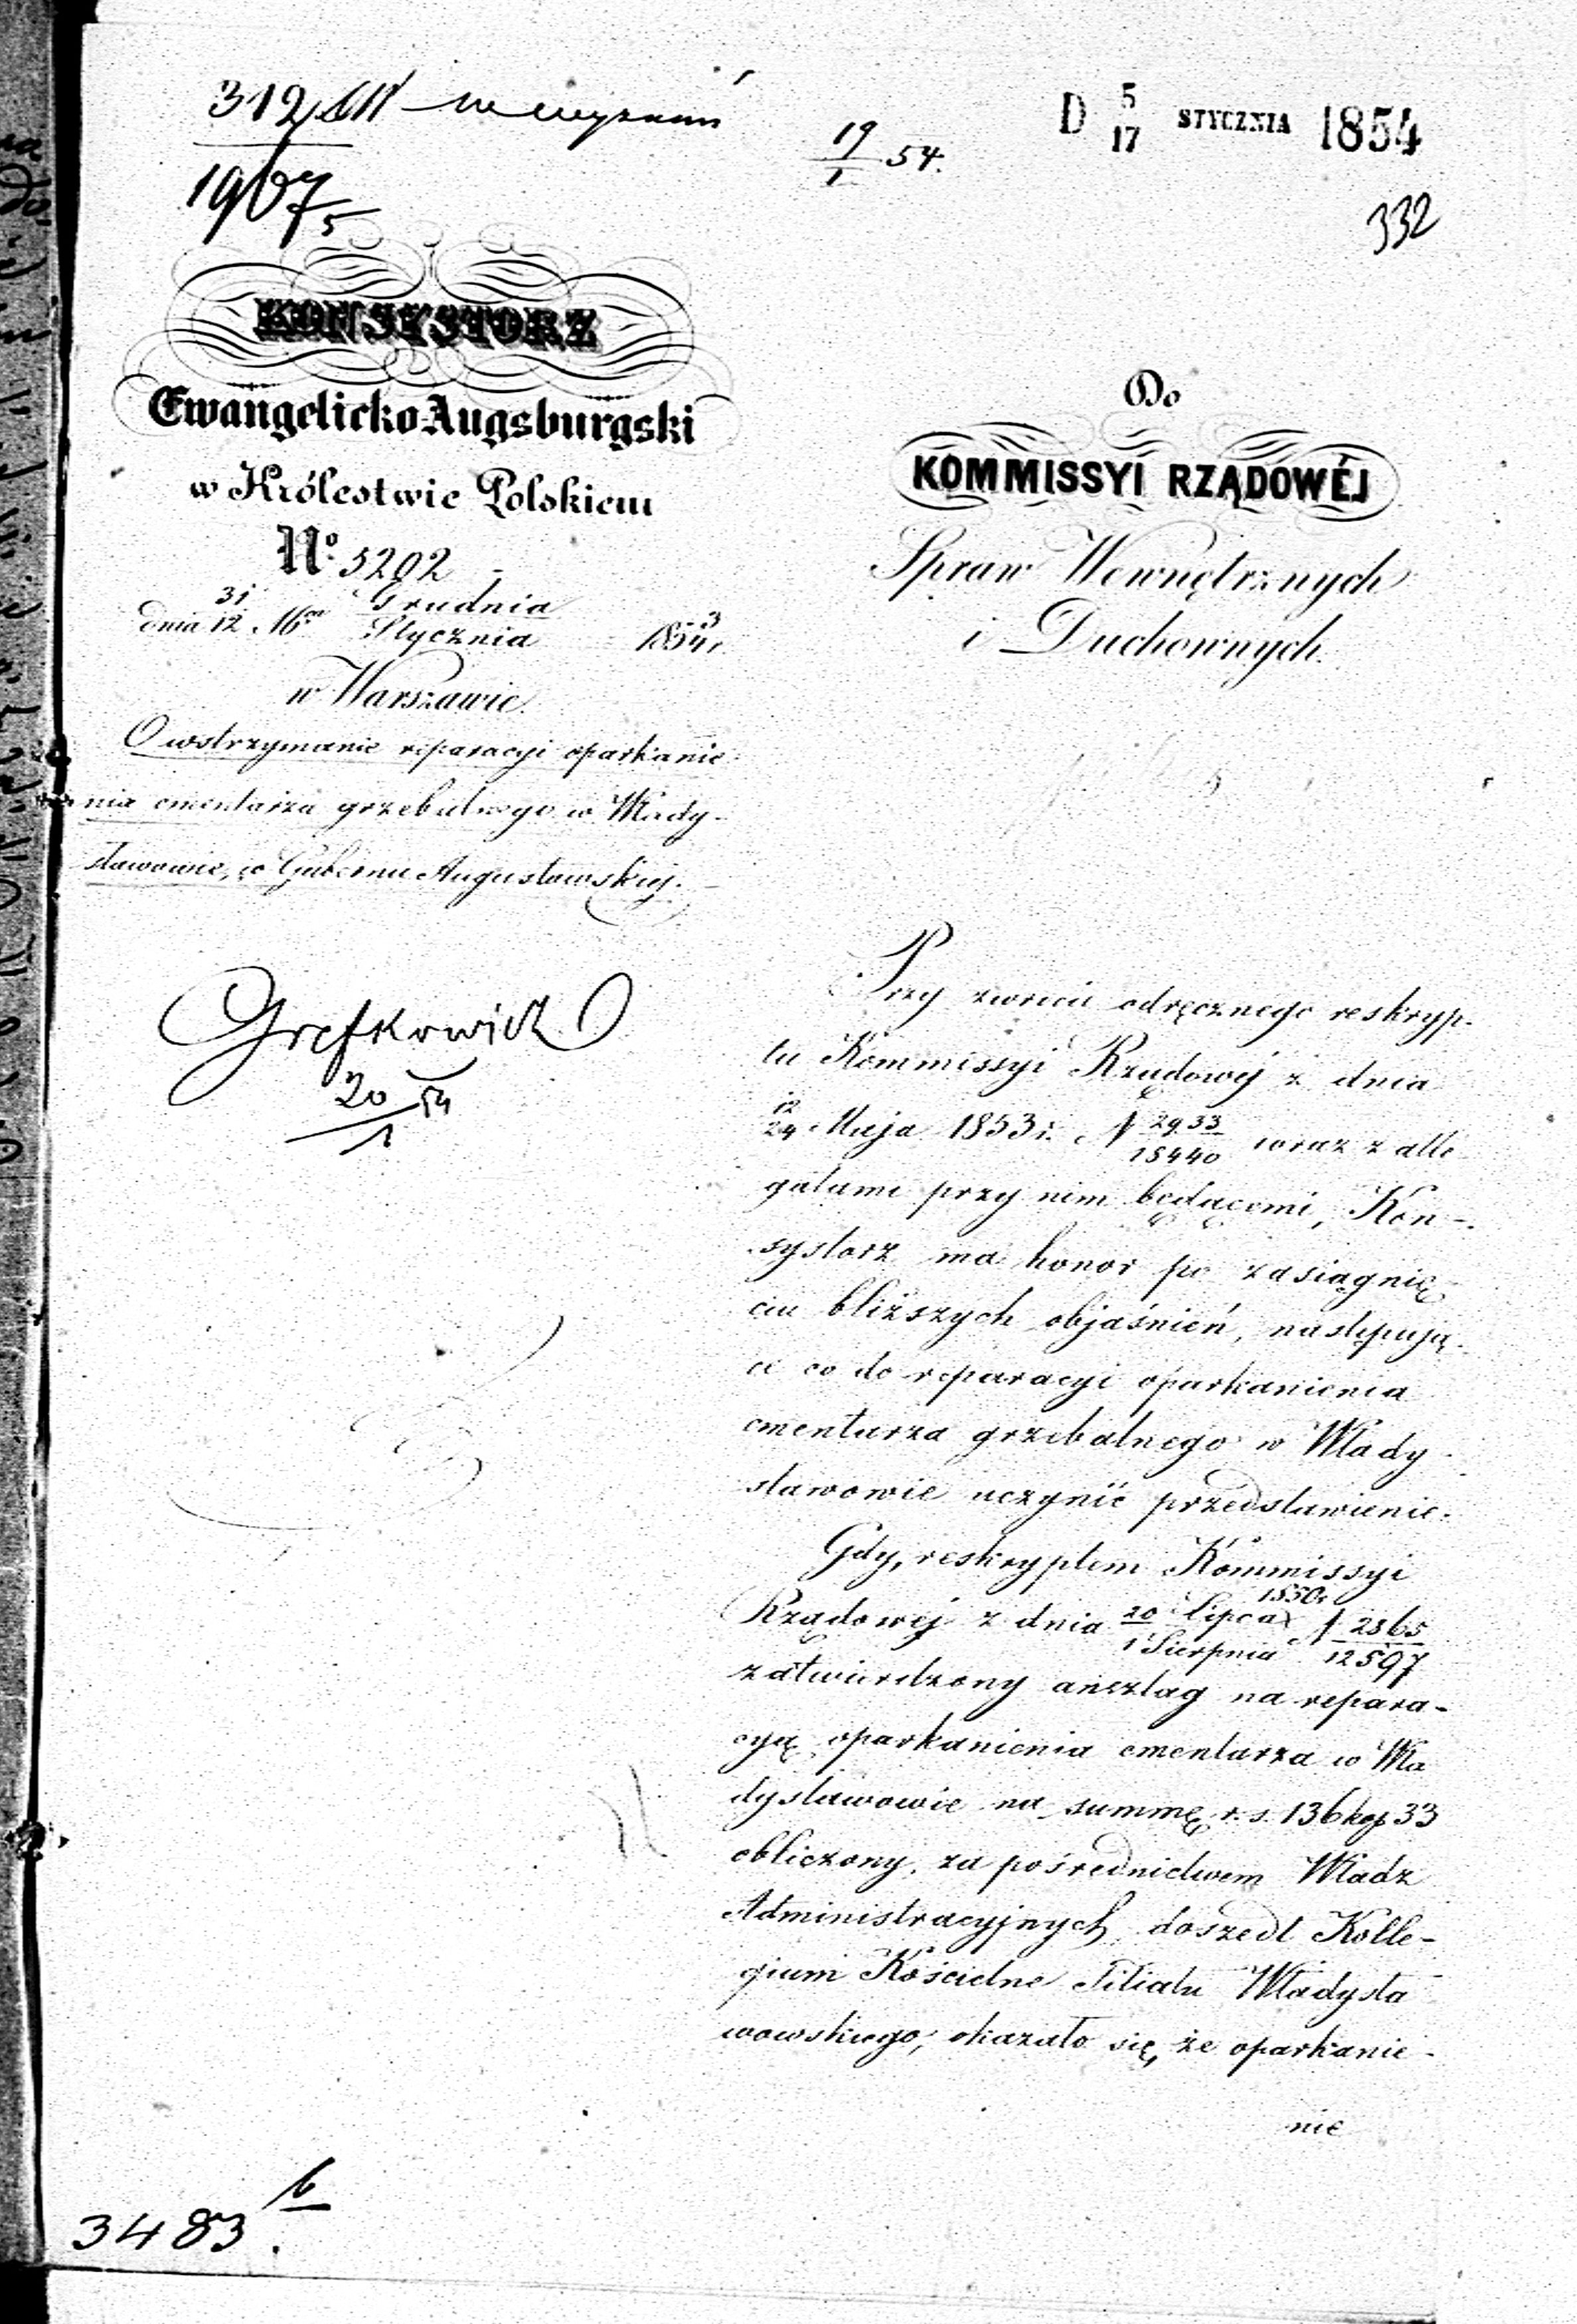 312
1967/5
19/1 54.
D 5/17 STYCZNIA 1854
332
KONSYSTORZ
Ewangelicko-Augsburgski
w Królestwie Polskiem
No. 5202
dnia 31/12 Grudnia/Stycznia 1853/4 r.
w Warszawie.
O wstrzymanie reparacyi oparkanie-
nia cmentarza grzebalnego w Włady-
sławowie, w Gubernii Augustowskiej.
20/1 54
Do
KOMMISSYI RZĄDOWÉJ
Spraw Wewnętrznych
i Duchownych.
Przy zwrocie odręcznego reskryp-
tu Kommissyi Rządowej z dnia
12/24 Maja 1853 r. N 2933/15440 wraz z alle-
gatami przy nim będącemi, Kon-
systorz ma honor po zasiągnię-
ciu bliższych objaśnień, następują-
ce co do reparacyi oparkanienia
cmentarza grzebalnego w Włady-
sławowie uczynić przedstawienie.
Gdy, reskryptem Kommissyi
Rządowej z dnia 20 Lipca/1 Sierpnia 1850 r. N 2365/12597
zatwierdzony anszlag na repara-
cyą oparkanienia cmentarza w Wła-
dysławowie na summę r. s. 136 kop 33
obliczony, za pośrednictwem Władz
Administracyjnych doszedł Kolle-
gium Kościelne Filiału Władysła-
wowskiego, okazało się, że oparkanie-
nie
3483.